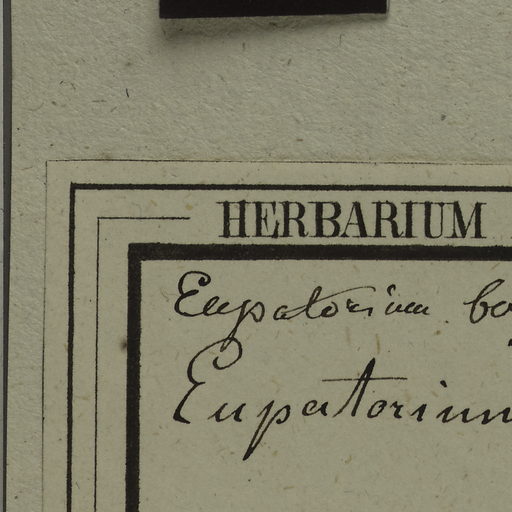 HERBARIUM
Eupatorium
Eupatorium